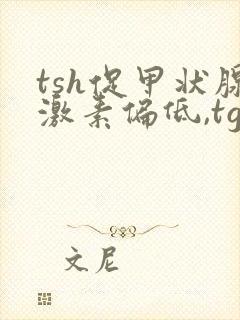 tsh促甲状腺
激素偏低,tg
文尼